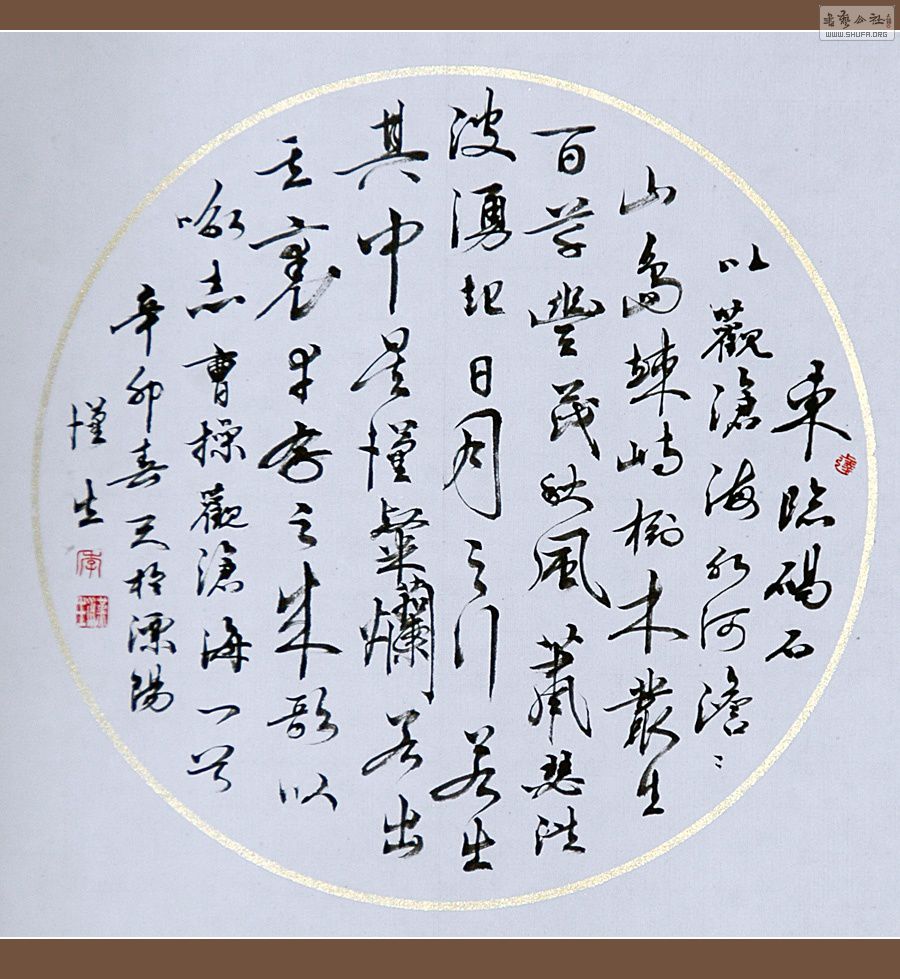 東臨碣石
以觀滄海水何澹〻
山島竦峙樹木叢生
百草豐茂秋風蕭瑟洪
波湧起日月之行若生
其中星漢粲爛若出
其裏幸甚至哉歌以
咏志曹操觀滄海一首
辛卯於溧陽
漢生
书艺公社
WWW.SHUFA.ORG